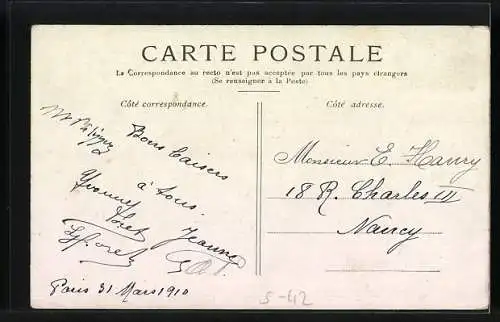 CARTE POSTALE
La Correspondance au recto n'est pas acceptée par tous les pays étrangers
(Se renseigner à la Poste)
Côté correspondance.
Côté adresse.
Bons baisers
à tous.
Yvonne
Jeanne
Paris 31 Mars 1910
Monsieur E. Haury
18 R. Charles III
Nancy
S-42